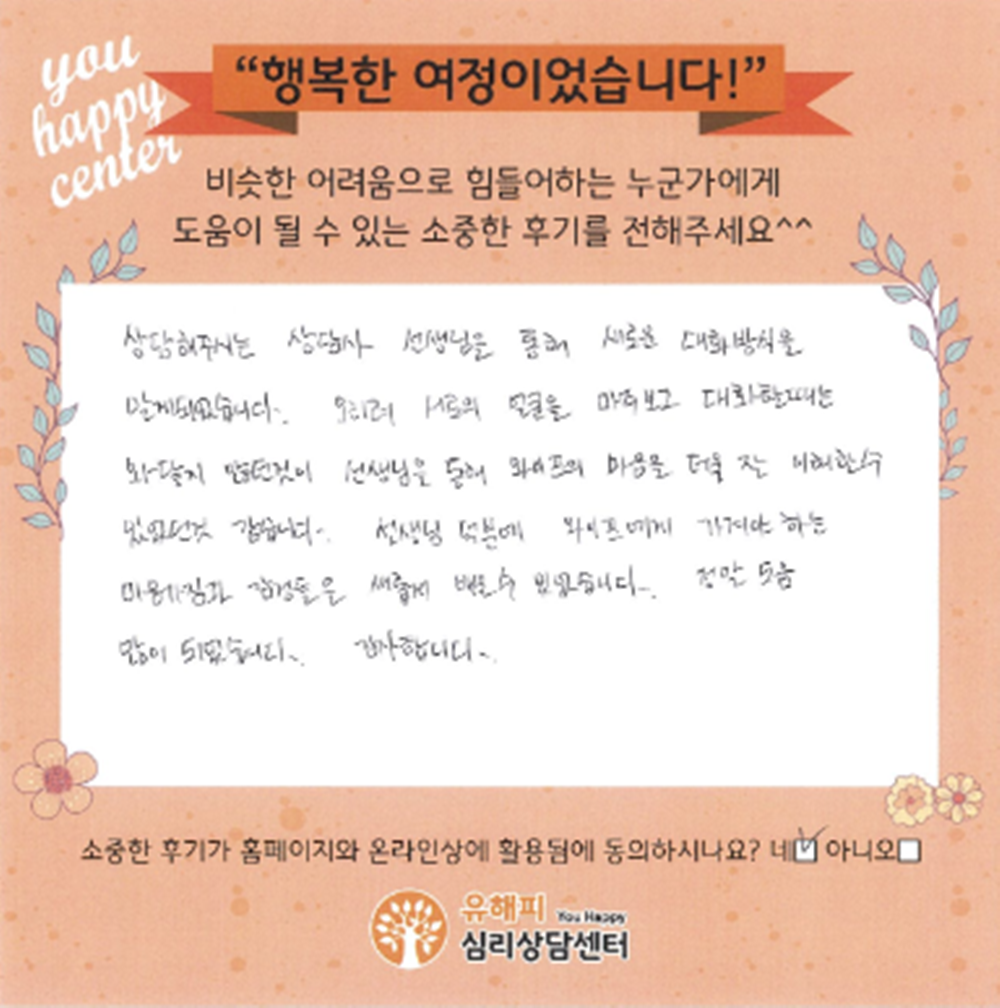 you
happy
center
“행복한 여정이었습니다!”
비슷한 어려움으로 힘들어하는 누군가에게
도움이 될 수 있는 소중한 후기를 전해주세요^^
상담해주시는 상담사 선생님을 통해 새로운 대화방식을
알게되었습니다. 오히려 서로의 얼굴을 마주보고 대화할때는
와닿지 않던것이 선생님을 통해 와이프의 마음을 더욱 잘 이해할수
있었던것 같습니다. 선생님 덕분에 와이프에게 가져야 하는
마음가짐과 감정들을 새롭게 배울수 있었습니다. 정말 도움
많이 되었습니다. 감사합니다.
소중한 후기가 홈페이지와 온라인상에 활용됨에 동의하시나요? 네 아니오
유해피 You Happy
심리상담센터